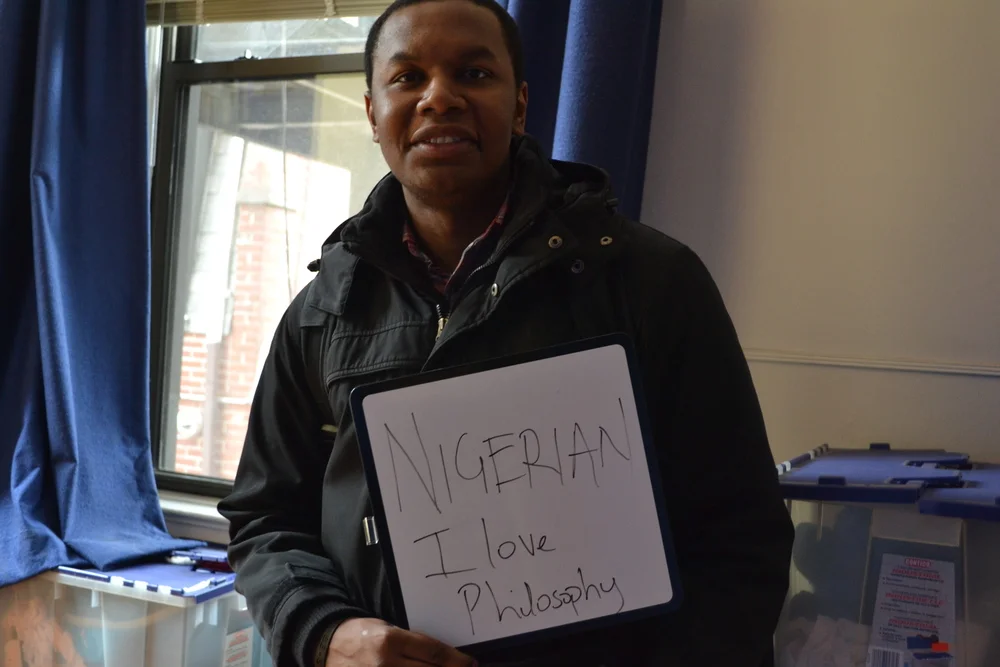 NIGERIAN
I love
Philosophy